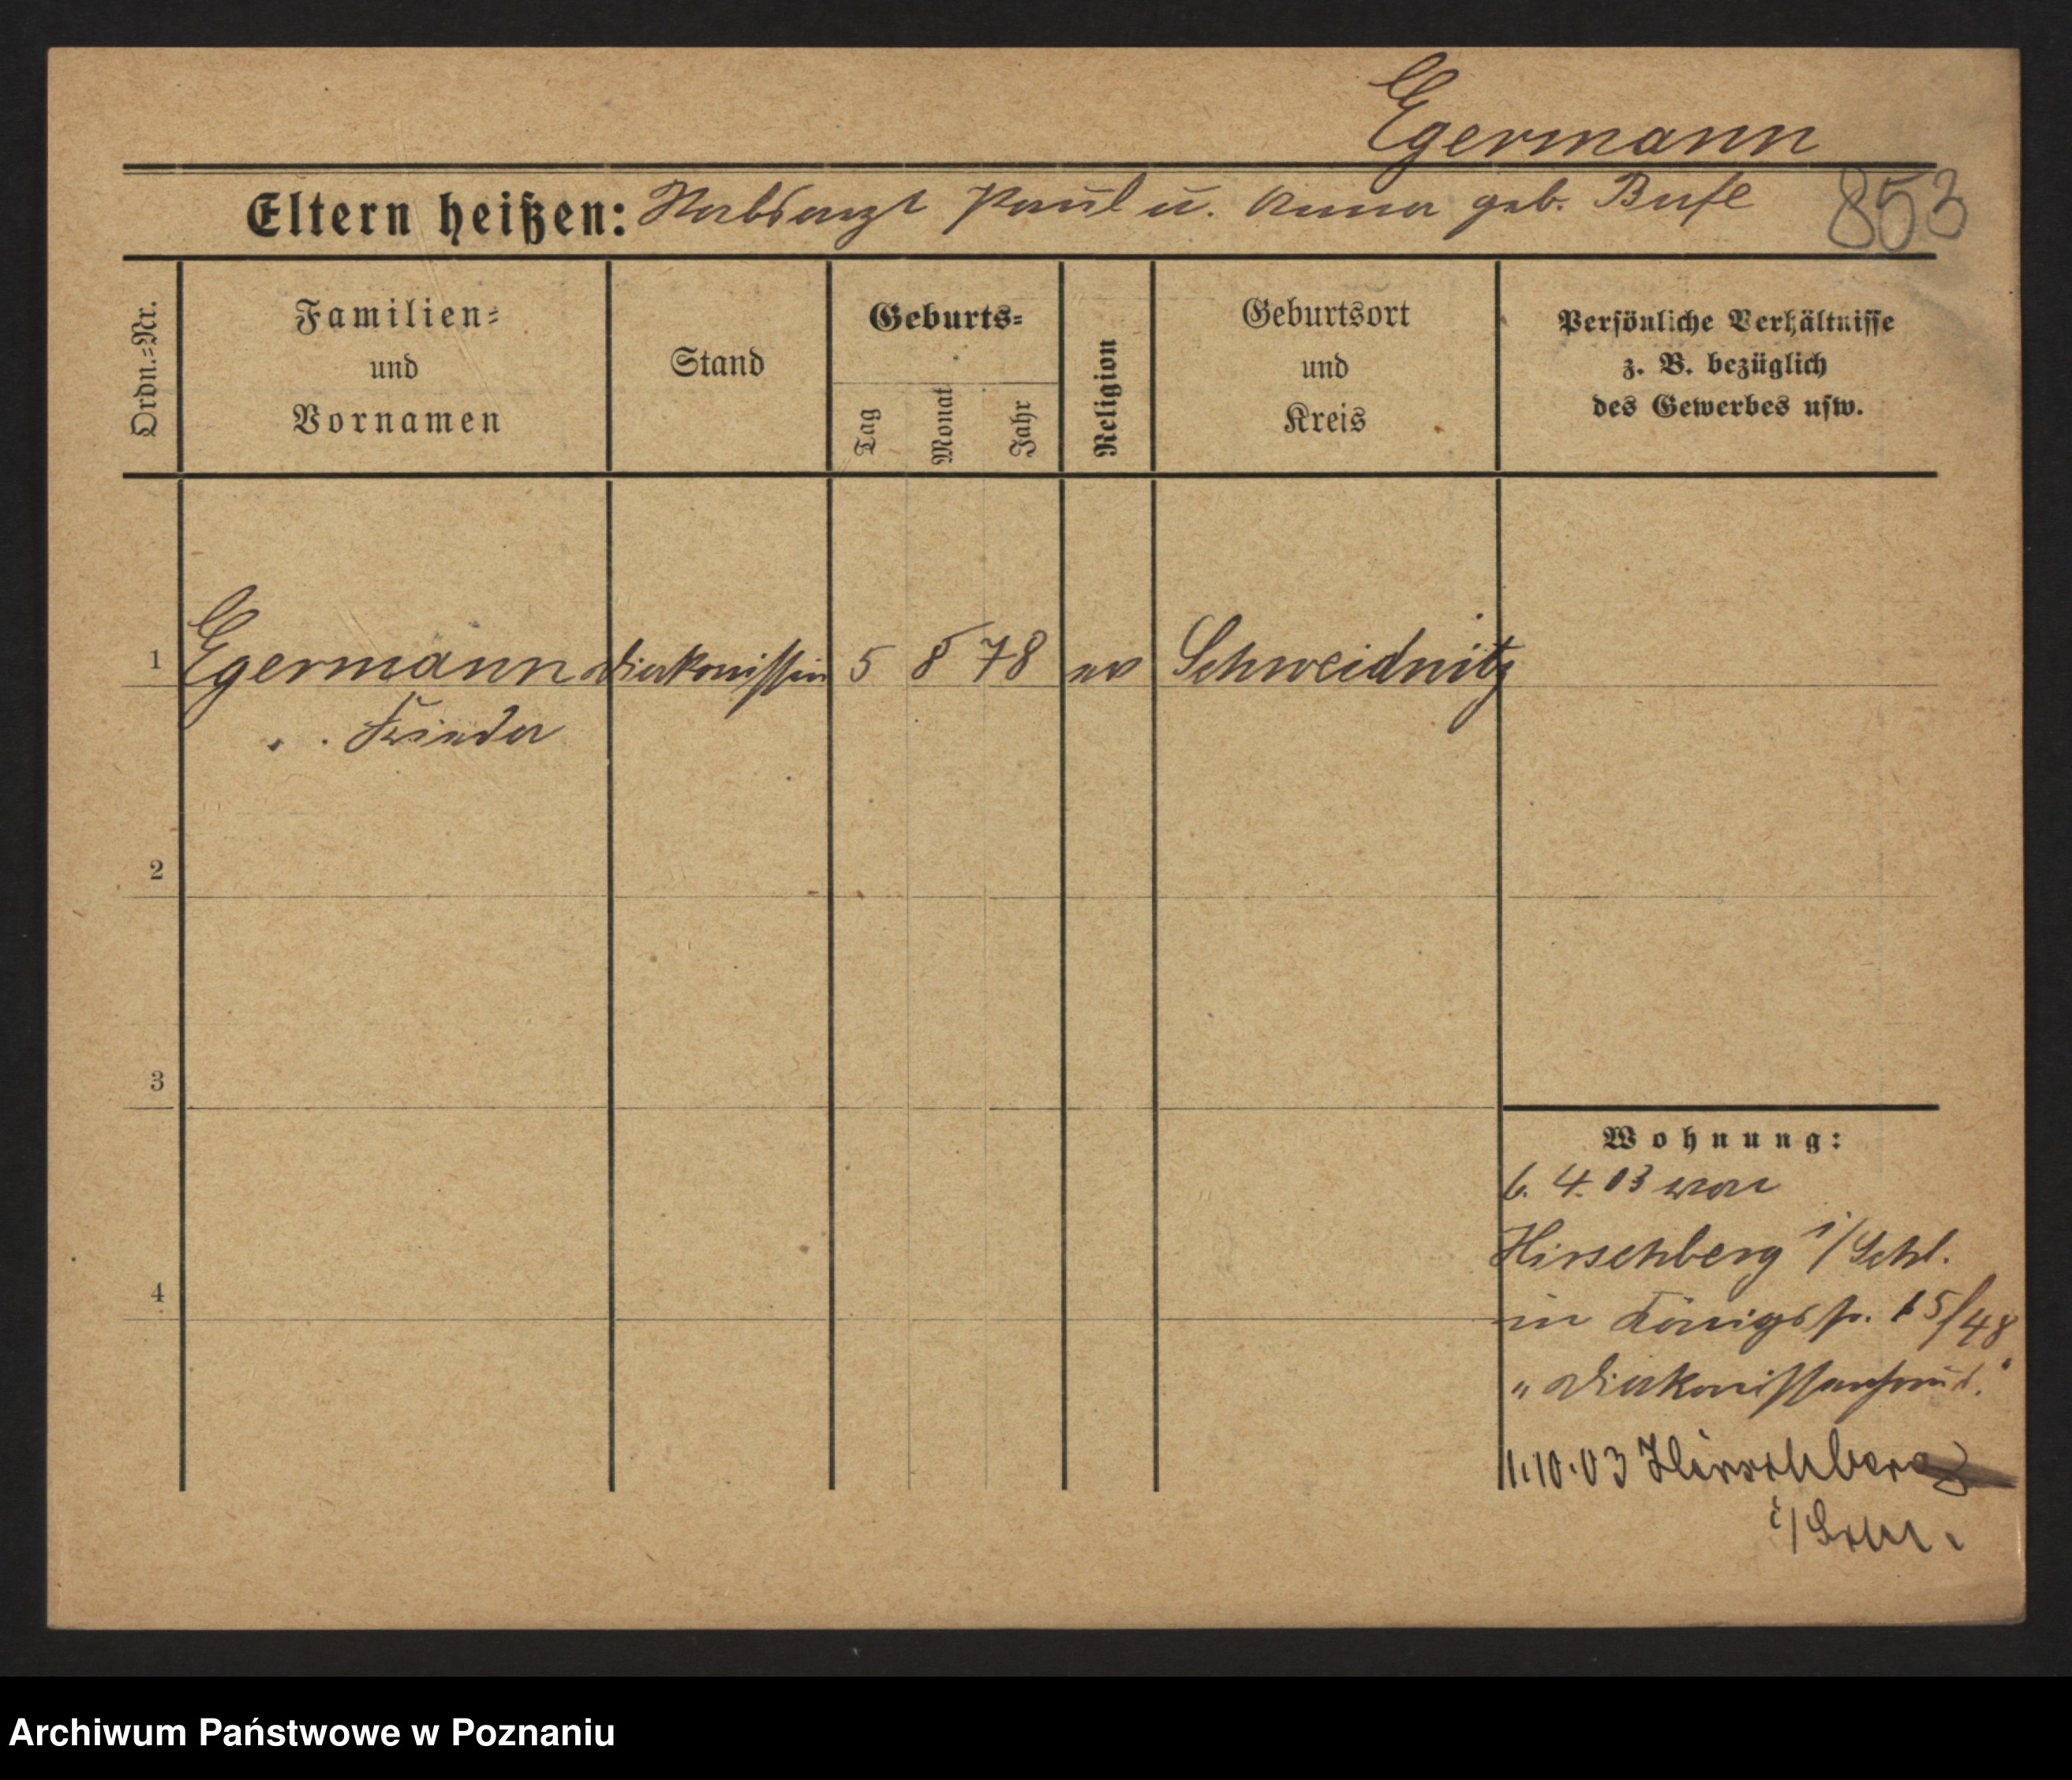 Egermann
Eltern heißen: Stabsarzt Paul u. Anna geb. 853
Ordn.=Nr.
Familien=
und
Vornamen
Stand
Geburts=
Tag
Monat
Jahr
Religion
Geburtsort
und
Kreis
Persönliche Verhältnisse
z. B. bezüglich
des Gewerbes usw.
1 Egermann Diakonissin 5 8 78 ev Schweidnitz
Frieda
2
3
4
Wohnung:
6. 4. 03 von
Hirschberg i/Schl.
in Königstr. 15/48
"Diakonissenhaus."
1.10.03 Hirschberg
i/Schl.
Archiwum Państwowe w Poznaniu